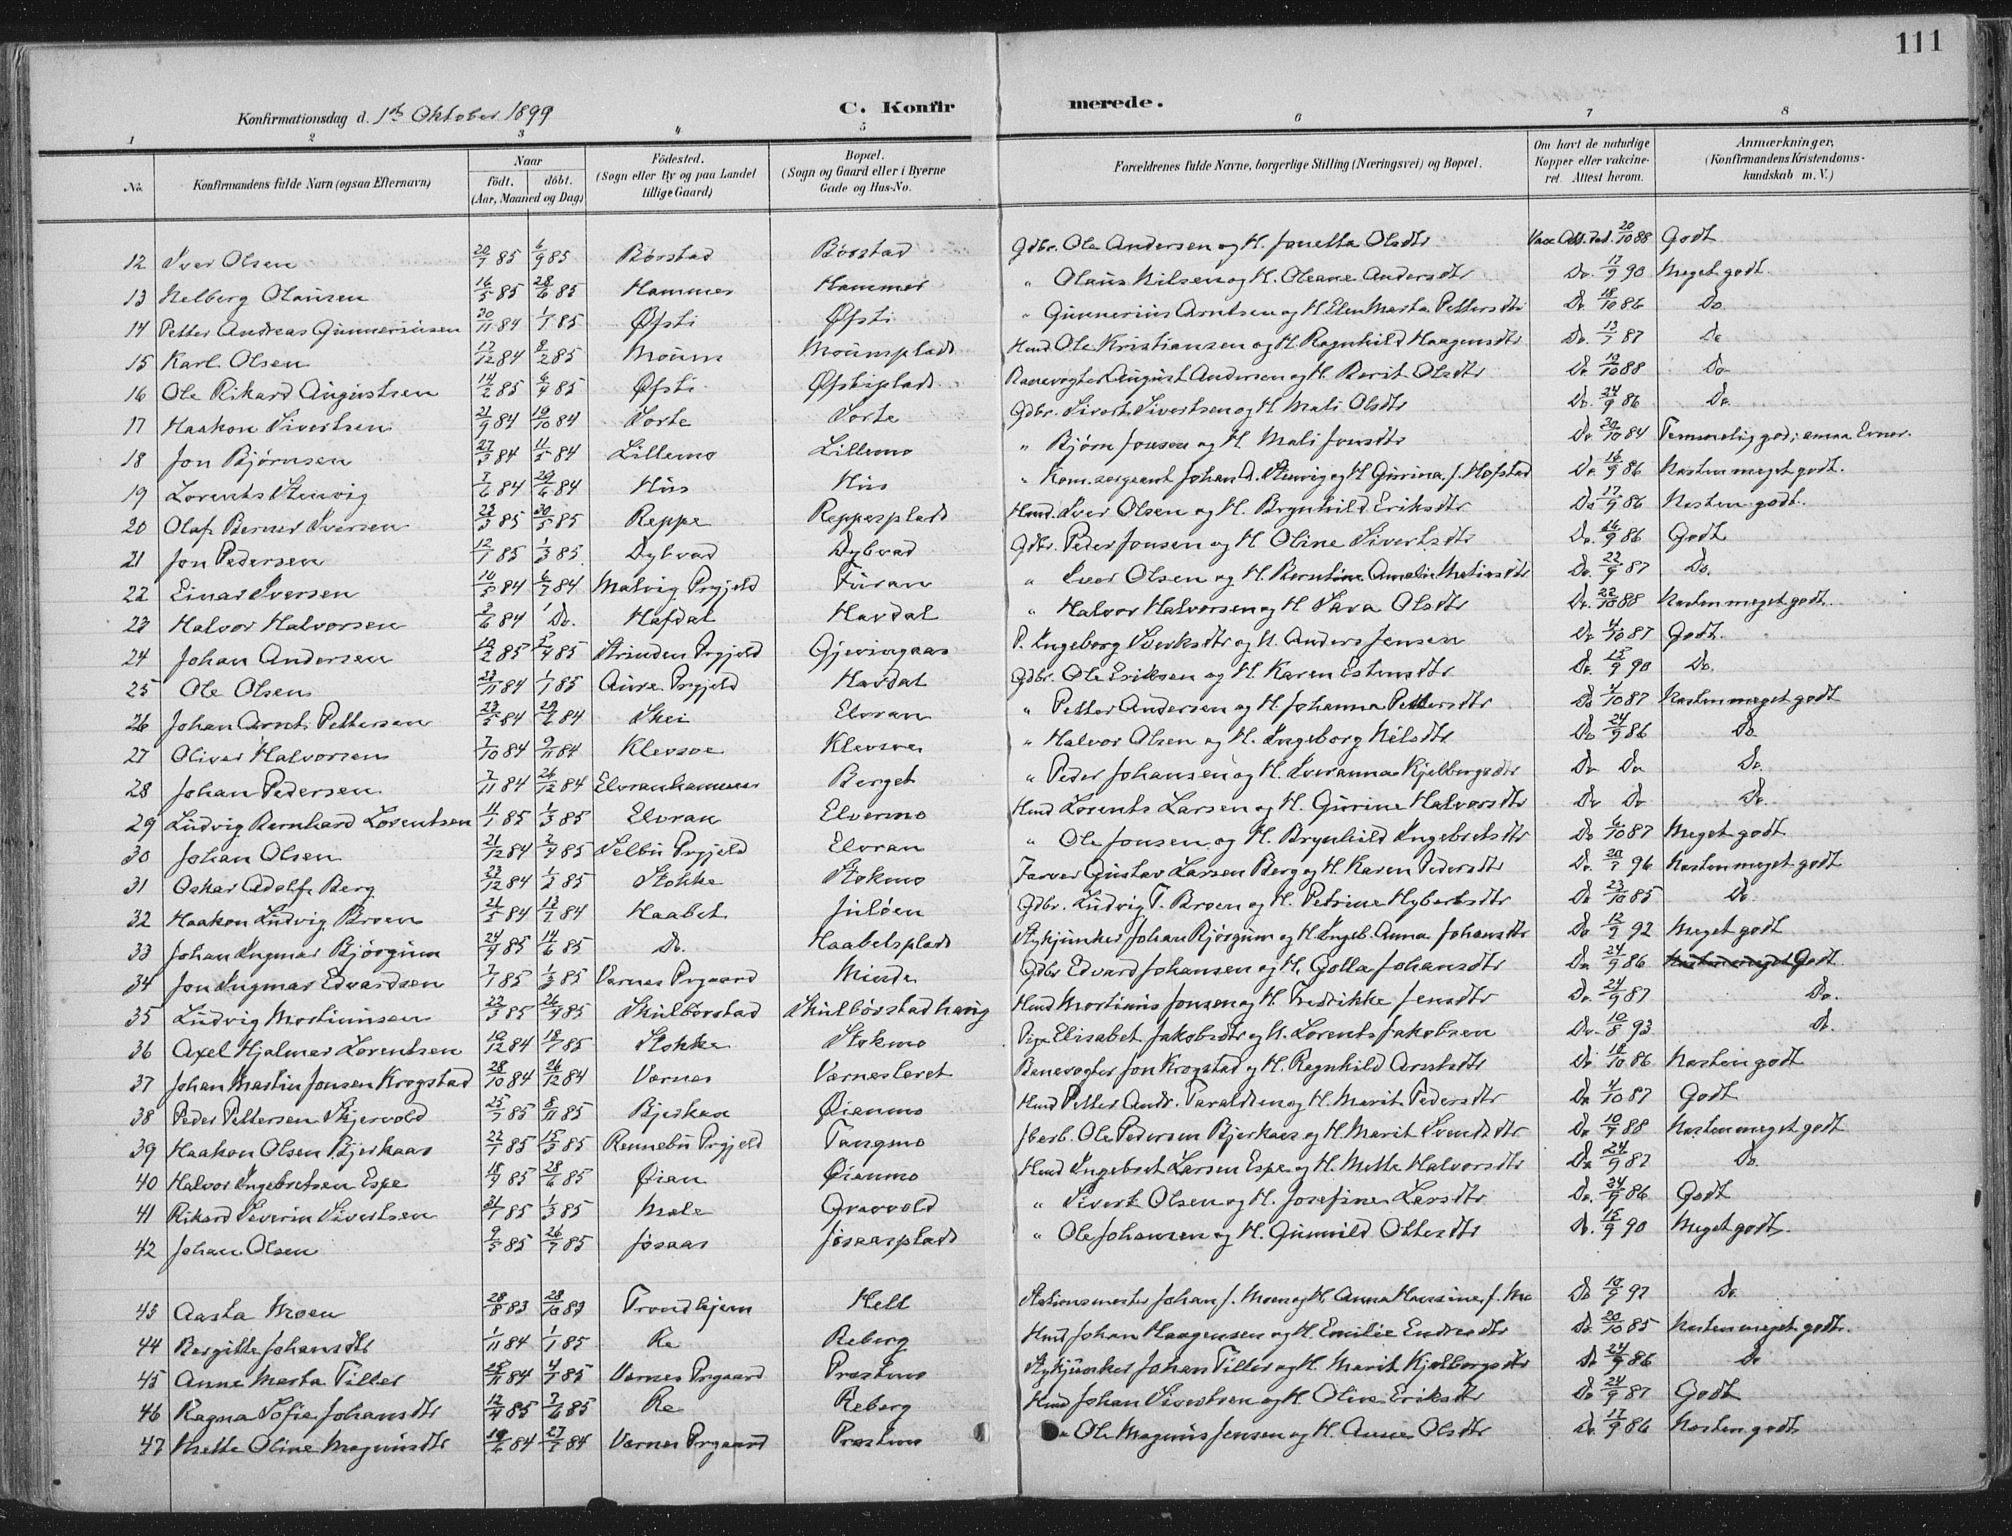 111
Konfirmationsdag d. 1ste Oktober 1899 C. Konfirmerede.
1 2 3 4 5 6 7 8
No. Konfirmandens fulde Navn (ogsaa Efternavn) Naar født. døbt. (Aar, Maaned og Dag) Fødested. (Sogn eller By og paa Landet tillige Gaard) Bopæl. (Sogn og Gaard eller i Byerne Gade og Hus-No. Forældrenes fulde Navne, borgerlige Stilling (Næringsvei) og Bopæl. Om havt de naturlige Kopper eller vakcineret. Attest herom. Anmærkninger, (Konfirmandens Kristendomskundskab m. V.)
12 Iver Olsen 20/7 85 6/9 85 Børstad Børstad Gdbr. Ole Andersen og H. Jonetta Olsdtr Vacc. Att. dat. 20/10 88 Godt
13 Melberg Olausen 16/5 85 28/6 85 Hammer Hammer " Olaus Nilsen og H. Oleane Andersdtr Do. 17/9 90 Meget godt.
14 Petter Andreas Gunneriusen 20/11 84 1/1 85 Øfsti Øfsti " Gunnerius Arntsen og H. Elen Marta Pettersdtr Do. 18/10 86 Do
15 Karl Olsen 17/12 84 8/2 85 Moum Moumsplads Hmd. Ole Kristiansen og H. Ragnhild Haagensdtr Do. 13/7 87 Do
16 Ole Rikard Augustsen 14/2 85 6/4 85 Øfsti Øfstiplads Banevogter August Andersen og H. Berit Olsdtr Do 19/10 88 Do
17 Haakon Sivertsen 21/9 84 19/10 84 Vorte Vorte Gdbr. Sivert Sivertsen og H. Mali Olsdtr Do. 24/9 86 Do.
18 Jon Bjørnsen 27/3 84 11/5 84 Lillemo Lillemo " Bjørn Jonsen og H. Mali Jonsdtr Do 20/10 84 Temmelig god; smaa Evner.
19 Lorents Stenvig 7/6 84 29/6 84 Hus Hus " Kom.sergeant Johan A. Stenvig og H. Gurina f. Hofstad Do. 16/9 86 Næsten meget godt.
20 Olaf Berner Iversen 23/3 85 30/5 85 Reppe Reppesplads Hmd. Iver Olsen og H. Brynhild Eriksdtr Do 17/9 86 Næsten godt.
21 Jon Pedersen 12/1 85 1/3 85 Dybvad Dybvad Gdbr. Peder Jonsen og H. Oline Sivertsdtr Do. 16/9 86 Godt
22 Einar Iversen 10/5 84 6/7 84 Malvig Prgjeld Furan " Iver Olsen og H. Berntine Amalie Matiasdtr Do. 22/9 87 Do.
23 Halvor Halvorsen 2/6 84 Do. Hafdal Havdal " Halvor Halvorsen og H. Sara Olsdtr Do. 22/10 88 Næsten meget godt.
24 Johan Andersen 19/2 85 5/4 85 Strinden Prgjeld Gjevingaas P. Ingeborg Sveksdtr og U. Anders Jensen Do 4/10 87 Godt.
25 Ole Olsen 23/11 84 1/1 85 Aure Prgjeld Havdal Gdbr. Ole Eriksen og H. Karen Estensdtr Do. 15/9 90 Do.
26 Johan Arnt Pettersen 23/5 84 29/6 84 Skei Elvran " Petter Andersen og H. Johanna Pettersdtr Do 4/10 87 Næsten meget godt
27 Oliver Halvorsen 7/10 84 9/11 84 Klevsve Klevsve " Halvor Olsen og H. Ingeborg Nilsdtr Do 24/9 86 Do.
28 Johan Pedersen 7/11 84 26/12 84 Elvranhammer Berget " Peder Johansen og H. Iveranna Kjelbergsdtr Do Do Do.
29 Ludvig Bernhard Lorentsen 11/1 85 1/3 85 Elvran Elvermo Hmd Lorents Larsen og H. Gurine Halvorsdtr Do Do Do.
30 Johan Olsen 21/12 84 2/4 85 Selbu Prgjeld Elvran " Ole Jonsen og H. Brynhild Ingebretsdtr Do 6/10 87 Meget godt
31 Oskar Adolf Berg 22/12 84 1/2 85 Stokke Stokmo Farver Gustav Larsen Berg og H. Karen Pedersdtr Do. 20/7 96 Næsten meget godt
32 Haakon Ludvig Broen 21/5 84 13/7 84 Haabet Juløen Gdbr. Ludvig T. Broen og H. Petrine Hybertsdtr Do 23/10 85 Do.
33 Johan Ingmar Bjørgum 24/4 85 14/6 85 Do. Haabetsplads Stykjunker Johan Bjørgum og H. Ingeb. Anna Johansdtr Do 12/9 92 Meget godt
34 Jon Ingmar Edvardsen 7/1 85 1/3 85 Værnes Prgaard Minde Gdbr Edvard Johansen og H. Golla Johansdtr Do 24/9 86 Næsten meget Godt
35 Ludvig Mortinusen 22/3 85 26/4 85 Skulbørstad Skulbørstadhaug Hmd Mortinus Jonsen og H. Fredrikke Jensdtr Do. 24/9 87 Do.
36 Axel Hjalmar Lorentsen 10/12 84 18/1 85 Stokke Stokmo Pige Elisabet Jakobsdtr og U. Lorents Jakobsen Do. 10/8 93 Do.
37 Johan Martin Jonsen Krogstad 28/10 84 26/12 84 Værnes Værnesleret Banevogter Jon Krogstad og H. Ragnhild Arntsdtr Do. 18/10 86 Næsten godt
38 Peder Pettersen Skjervold 25/7 85 8/11 85 Bjerkan Øianmo Hmd Petter Andr. Taraldsen og H. Marit Pedersdtr Do 4/10 87 Godt
39 Haakon Olsen Bjerkaas 22/1 85 15/3 85 Rennebu Prgjeld Tangmo Jbarb. Ole Pedersen Bjerkaas og H. Marit Svendsdtr Do 10/9 88 Næsten meget godt
40 Halvor Ingebretsen Espe 18/4 85 28/6 85 Øian Øianmo Hmd Ingebret Larsen Espe og H. Mette Halvorsdtr Do 24/9 87 Do.
41 Rikard Severin Sivertsen 31/1 85 1/3 85 Mæle Græsvold " Sivert Olsen og H. Josefine Larsdtr Do. 24/9 86 Godt
42 Johan Olsen 9/5 85 26/7 85 Jøsaas Jøsaasplads " Ole Johansen og H. Gunnild Ottersdtr Do. 15/9 90 Meget godt.
43 Aasta Moen 28/8 83 28/10 83 Trondhjem Hell Stationsmester Johan J. Moen og H. Anna Hansine f. Mo Do 10/9 97 Do.
44 Bergitte Johansdtr 1/11 84 1/1 85 Re Reberg Hmd Johan Haagensen og H. Emilie Endresdtr Do. 20/10 85 Næsten meget godt.
45 Anne Marta Tiller 25/11 84 4/1 85 Værnes Prgaard Præstmo Stykjunker Johan Tiller og H. Marit Kjelbergsdtr Do 24/9 86 Do
46 Ragna Sofie Johansdtr 12/4 85 7/6 85 Re Reberg Hmd Johan Sivertsen og H. Olive Eriksdtr Do 24/9 87 Godt
47 Mette Oline Magnusdtr 19/6 84 27/7 84 Værnes Prgaard Præstmo " Ole Magnus Jensen og H. Anne Olsdtr Do. 17/9 86 Næsten godt